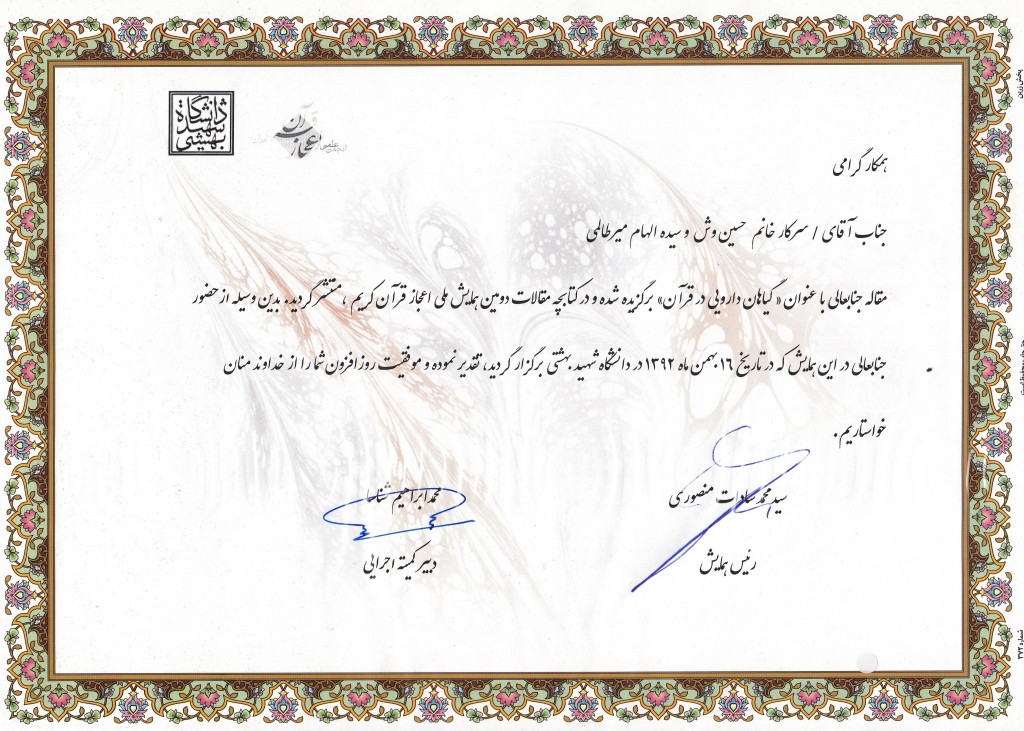 دانشگاه
شهید
بهشتی
اعجاز قرآن
همکار گرامی
جناب آقای / سرکار خانم حسین وش و سیده الهام میرطالمی
مقاله جنابعالی با عنوان « گیاهان دارویی در قرآن» برگزیده شده و در کتابچه مقالات دومین همایش ملی اعجاز قرآن کریم ، منتشر گردید. بدین وسیله از حضور
جنابعالی در این همایش که در تاریخ ۱۶ بهمن ماه ۱۳۹۲ در دانشگاه شهید بهشتی برگزار گردید، تقدیر نموده و موفقیت روز افزون شما را از خداوند منان
خواستاریم .
سید محمد سادات منصوری
محمد ابراهیم شناسا
رئیس همایش
دبیر کمیته اجرایی
پخش زرین